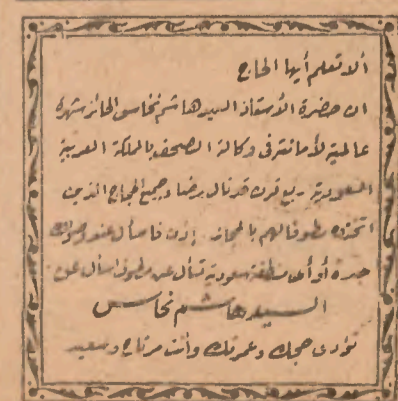 ألا تعلم أيها الحاج
ان حضرة الأستاذ السيد هاشم نحاس الحائز شهرة
عالمية لأمانته في وكالة الصحف بالمملكة العربية
السعودية ربع قرن قد نال رضا وجميع الحجاج الذين
اتخذوه مطوفا لهم بالحجاز. إذن فاسأل عند وصولك
جدة أو أى منطقة سعودية تسأل عن مطوف اسأل عن
السيد هاشم نحاس
تؤدى حجك وعمرتك وأنت مرتاح وسعيد